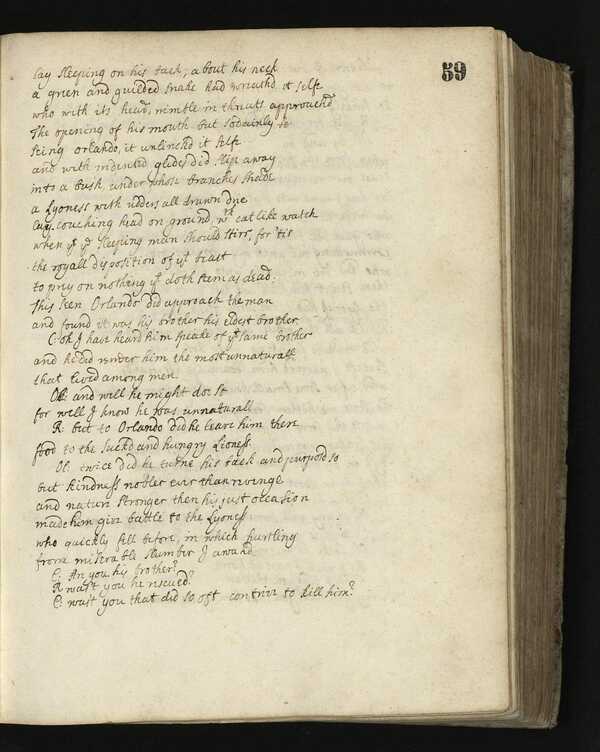 59
lay sleeping on his back, about his neck
a green and guilded snake had wreath'd it selfe
who with its head, nimble in threats approach'd
The opening of his mouth but sodainly
seing orlando, it unlinckd it selfe
and with indented glides did slip away
into a bush, under whose branches shade
a Lyoness with udders all drawn drye
lay couching head on ground, wth catlike watch
when yt ye sleeping man should stirr, for 'tis
the royall dysposition of yt beast
to prey on nothing yt doth seem as dead.
This seen Orlando did approach the man
and found it was his brother his eldest brother
C. oh I have heard him speake of yt same brother
and he did render him the most unnaturall
that lived among men.
Ol: and well he might doe so
for well I know he was unnaturall
R. but to Orlando did he leave him there
food to the suckd and hungry Lioness.
Ol. twice did he turne his back and purposd so
but kindness nobler ever than revenge
and nature stronger then his just occasion
made him give battle to the Lyoness
who quickly fell before, in which hurtling
from miserable slumber I awakd
C: Are you his brother?
R wast you he rescued?
C: wast you that did so oft contrive to kill him?